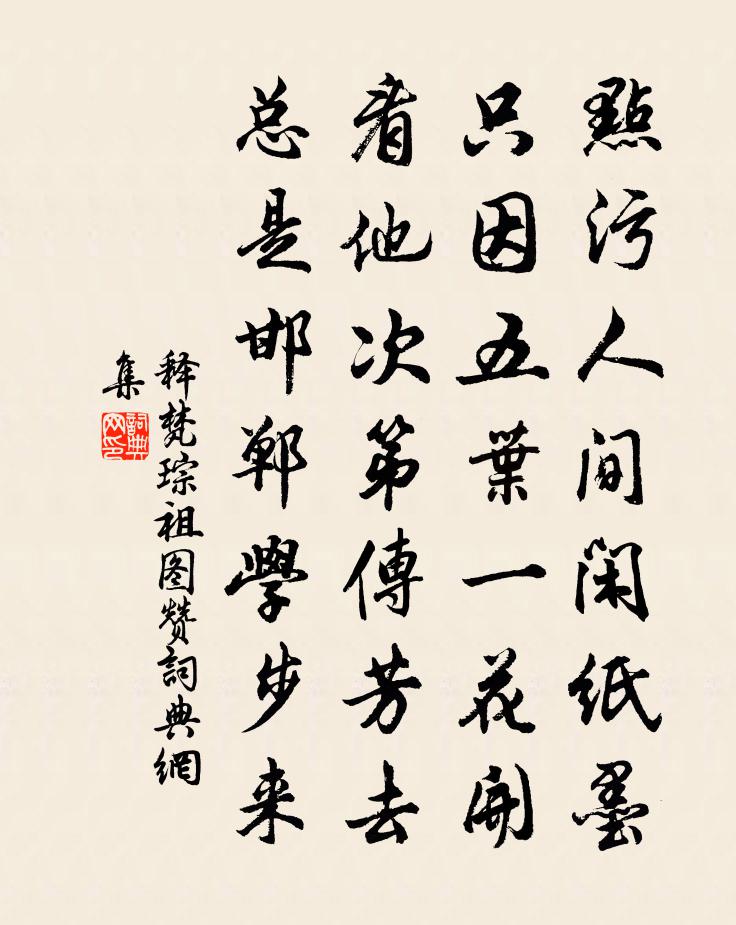 點污人間閑紙墨
只因五葉一花開
看他次第傳芳去
总是邯鄲學步来
释梵琮祖图赞詞典網
集
詞典
网印